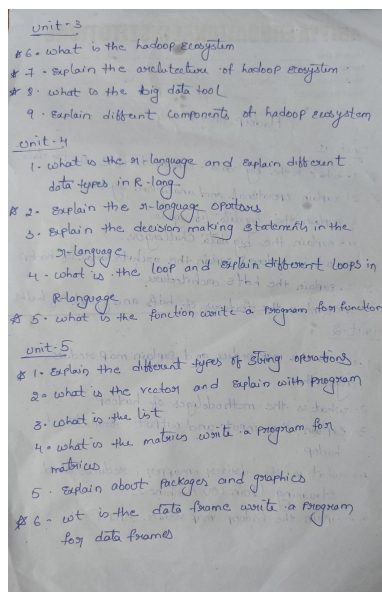 unit-3
* 6. what is the hadoop Ecosystem
* 7. Explain the architecture of hadoop Ecosystem.
* 8. what is the big data tool
9. Explain different components of hadoop ecosystem
unit-4
1. what is the r-language and explain different
data types in R-lang
* 2. Explain the r-language opartors
3. Explain the decision making statements in the
r-language
4. what is the loop and Explain different loops in
R-language
* 5. what is the function write a program for function
unit-5
* 1. Explain the different types of string operations
2. what is the vector and Explain with program
3. what is the list
4. what is the matrics write a program for
matrices
5. Explain about Packages and graphics
* 6. wt is the data frame write a program
for data frames